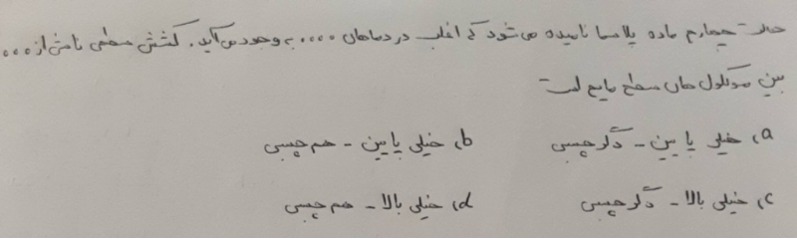 حالت چهارم ماده پلاسما نامیده می‌شود که اغلب در دماهای .... به وجود می‌آید. کشش سطحی ناشی از ...
بین مولکول های سطح مایع است
a) خیلی پایین - دگرچسبی b) خیلی پایین - هم‌چسبی
c) خیلی بالا - دگرچسبی d) خیلی بالا - هم‌چسبی